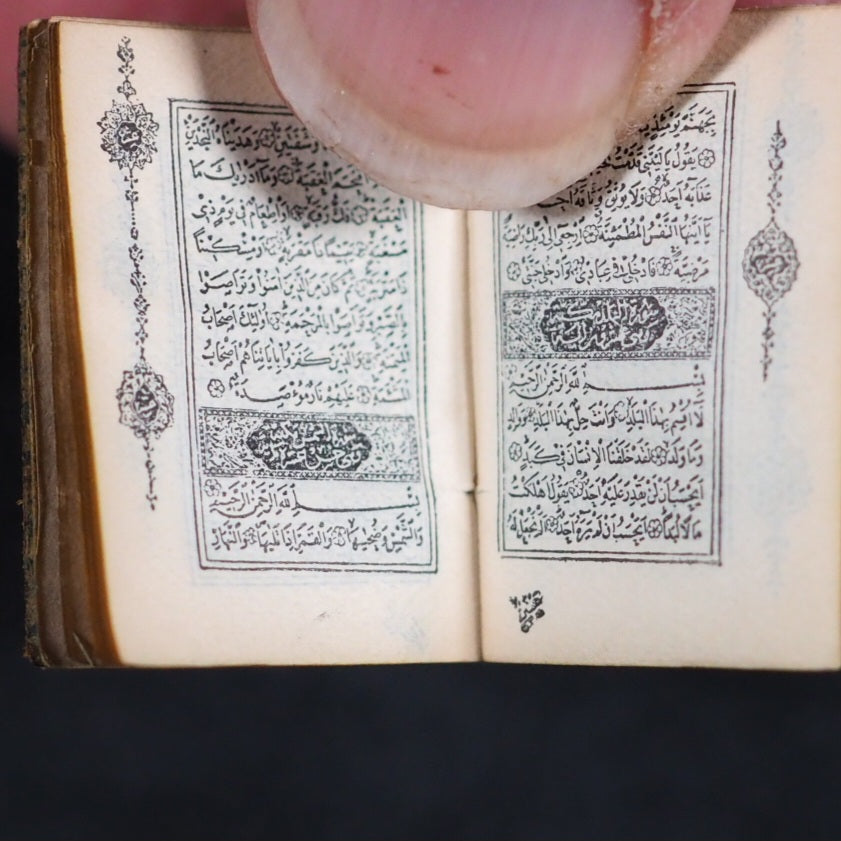 بِجَهَنَّمَ يَوْمَئِذٍ
يَقُولُ يَالَيْتَنِي قَدَّمْتُ
عَذَابَهُ أَحَدٌ وَلَا يُوثِقُ وَثَاقَهُ أَحَدٌ
يَا أَيَّتُهَا النَّفْسُ الْمُطْمَئِنَّةُ ارْجِعِي إِلَى رَبِّكِ رَاضِيَةً
مَرْضِيَّةً فَادْخُلِي فِي عِبَادِي وَادْخُلِي جَنَّتِي
سورة البلد
بِسْمِ اللَّهِ الرَّحْمَنِ الرَّحِيمِ
لَا أُقْسِمُ بِهَذَا الْبَلَدِ وَأَنْتَ حِلٌّ بِهَذَا الْبَلَدِ وَوَالِدٍ
وَمَا وَلَدَ لَقَدْ خَلَقْنَا الْإِنْسَانَ فِي كَبَدٍ
أَيَحْسَبُ أَنْ لَنْ يَقْدِرَ عَلَيْهِ أَحَدٌ يَقُولُ أَهْلَكْتُ
مَالًا لُبَدًا أَيَحْسَبُ أَنْ لَمْ يَرَهُ أَحَدٌ أَلَمْ نَجْعَلْ لَهُ
وَشَفَتَيْنِ وَهَدَيْنَاهُ النَّجْدَيْنِ
اقْتَحَمَ الْعَقَبَةَ وَمَا أَدْرَاكَ مَا
الْعَقَبَةُ فَكُّ رَقَبَةٍ أَوْ إِطْعَامٌ فِي يَوْمٍ ذِي
مَسْغَبَةٍ يَتِيمًا ذَا مَقْرَبَةٍ أَوْ مِسْكِينًا
ذَا مَتْرَبَةٍ ثُمَّ كَانَ مِنَ الَّذِينَ آمَنُوا وَتَوَاصَوْا
بِالصَّبْرِ وَتَوَاصَوْا بِالْمَرْحَمَةِ أُولَئِكَ أَصْحَابُ
الْمَيْمَنَةِ وَالَّذِينَ كَفَرُوا بِآيَاتِنَا هُمْ أَصْحَابُ
الْمَشْأَمَةِ عَلَيْهِمْ نَارٌ مُؤْصَدَةٌ
بِسْمِ اللَّهِ الرَّحْمَنِ الرَّحِيمِ
وَالشَّمْسِ وَضُحَيهَا وَالْقَمَرِ إِذَا تَلَيهَا وَالنَّهَارِ